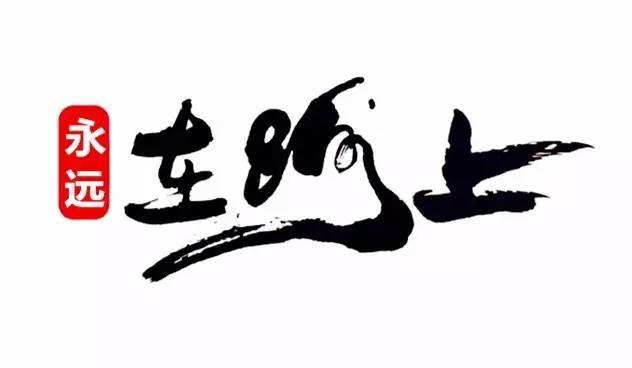 永远
在路上